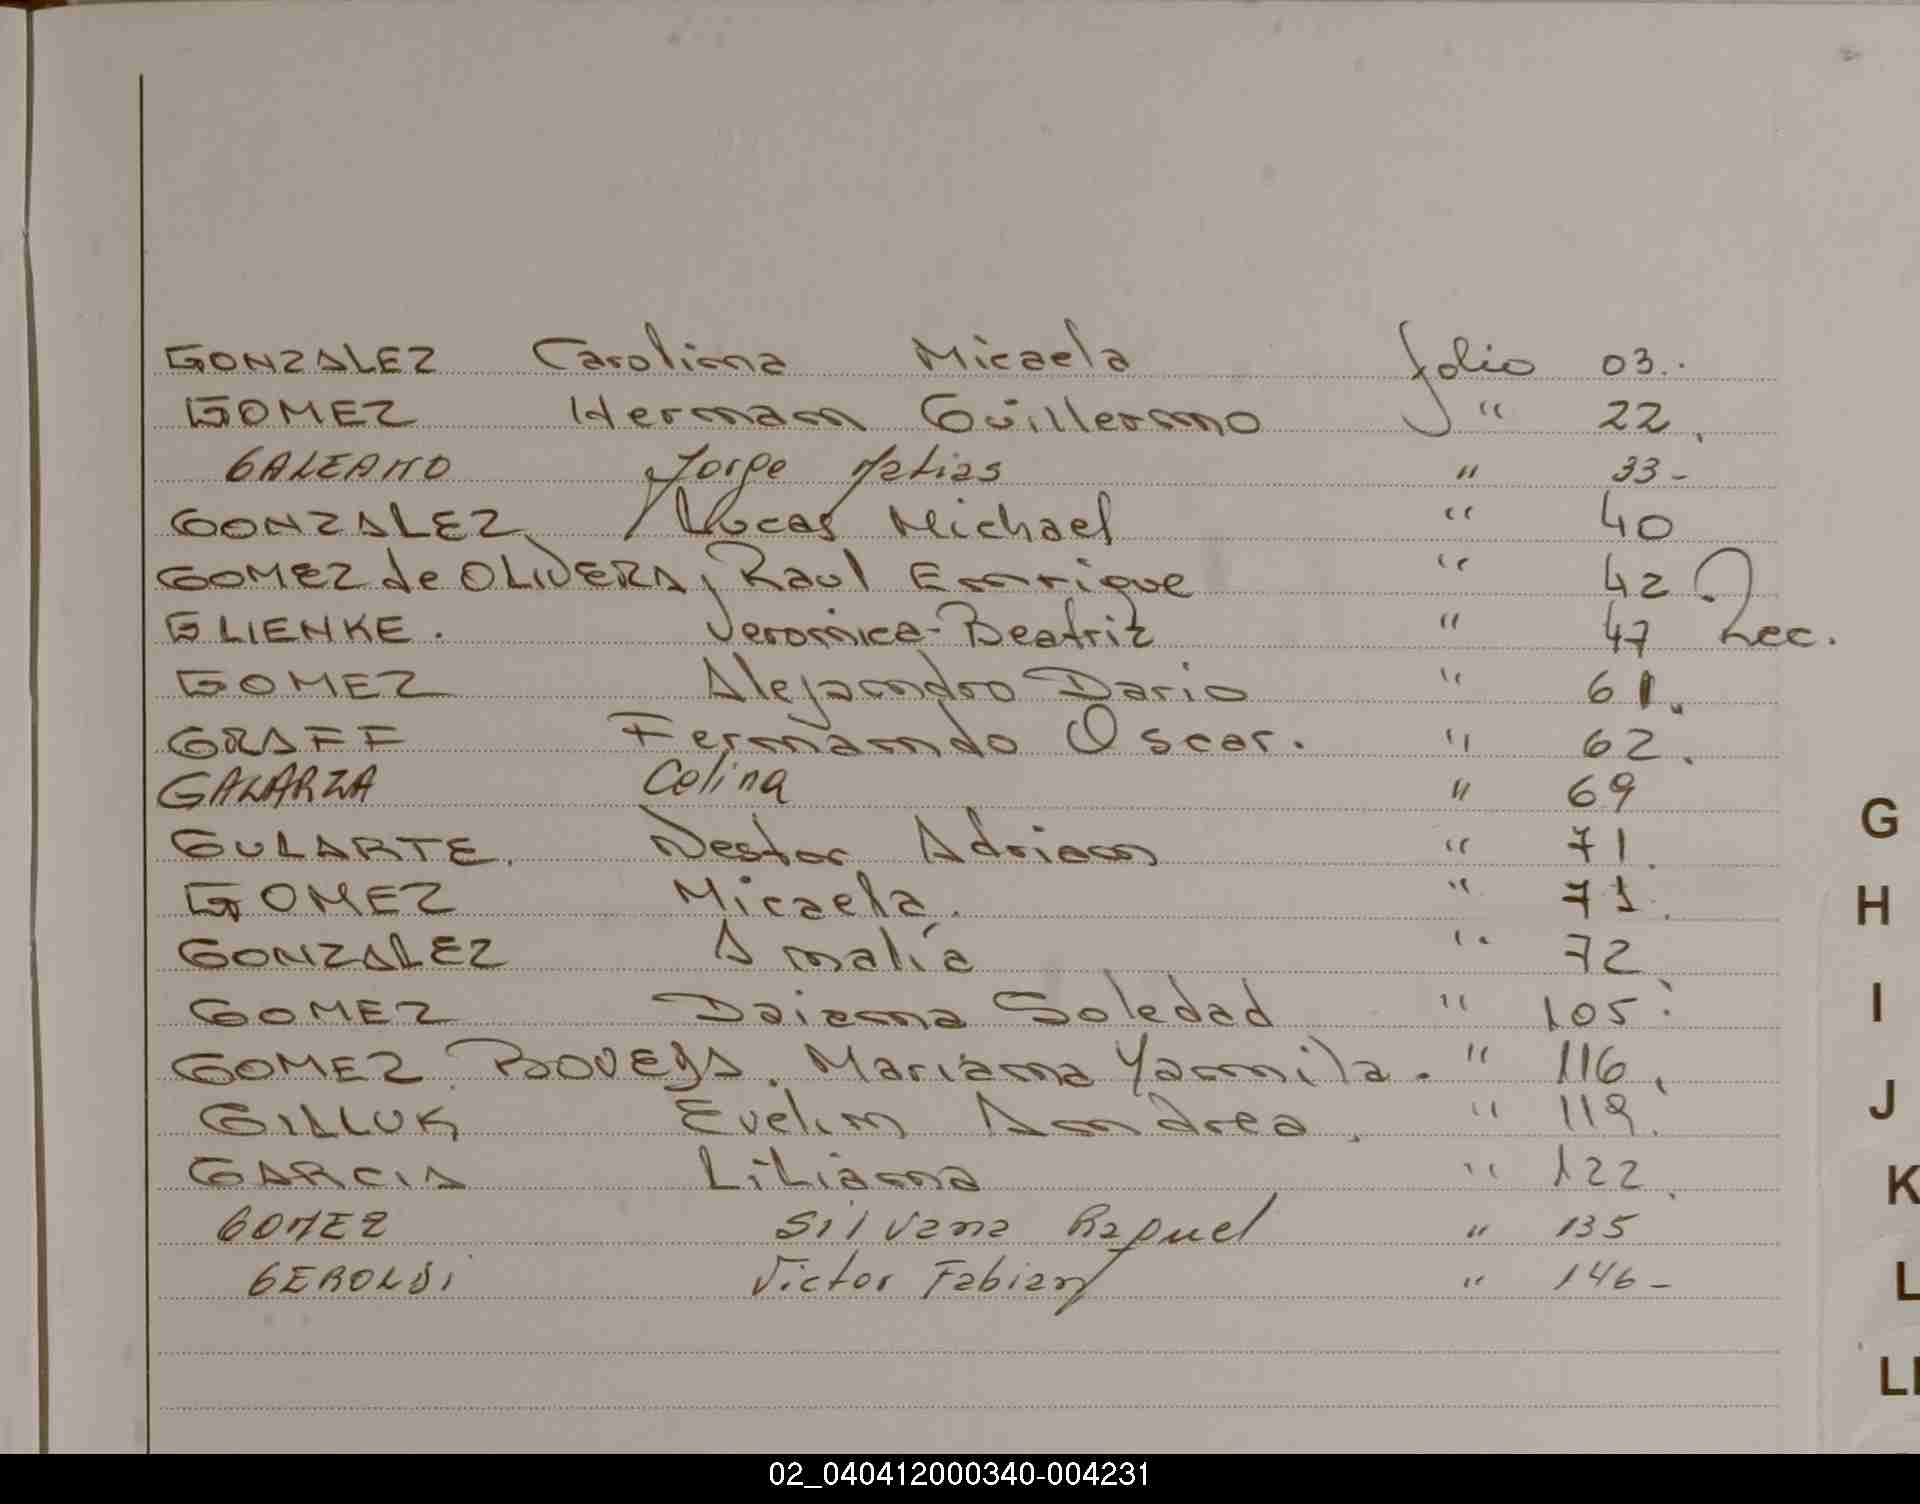 GONZALEZ Carolina Micaela folio 03.
GOMEZ Hernan Guillermo " 22.
GALEANO Jorge Matias " 33-
GONZALEZ, Lucas Michael " 40
GOMEZ de OLIVERA, Raul Enrique " 42
GLIENKE. Veronica Beatriz " 47 Rec.
GOMEZ Alejandro Dario " 61.
GRAFF Fernando Oscar. " 62.
GALARZA Celina " 69
GULARTE. Nestor Adrian " 71.
GOMEZ Micaela. " 71.
GONZALEZ Amalia " 72
GOMEZ Daiana Soledad " 105.
GOMEZ Mariana Yamila. " 116.
GILLUK Evelin Andrea. " 119.
GARCIA Liliana " 122.
GOMEZ Silvana Raquel " 135
GEROLDI Victor Fabian " 146-
G
H
I
J
K
L
LL
02_040412000340-004231